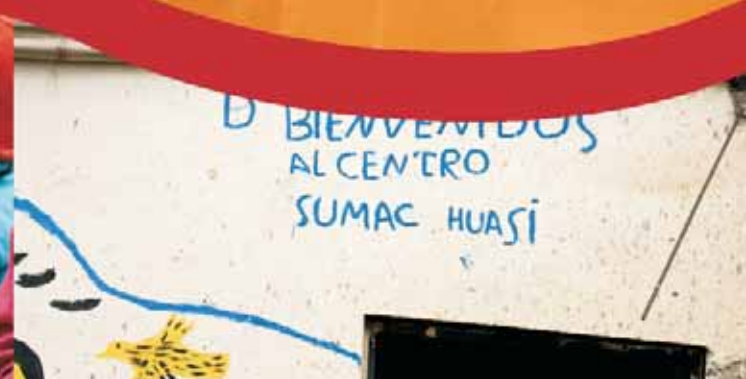 D BIENVENIDOS
AL CENTRO
SUMAC HUASi